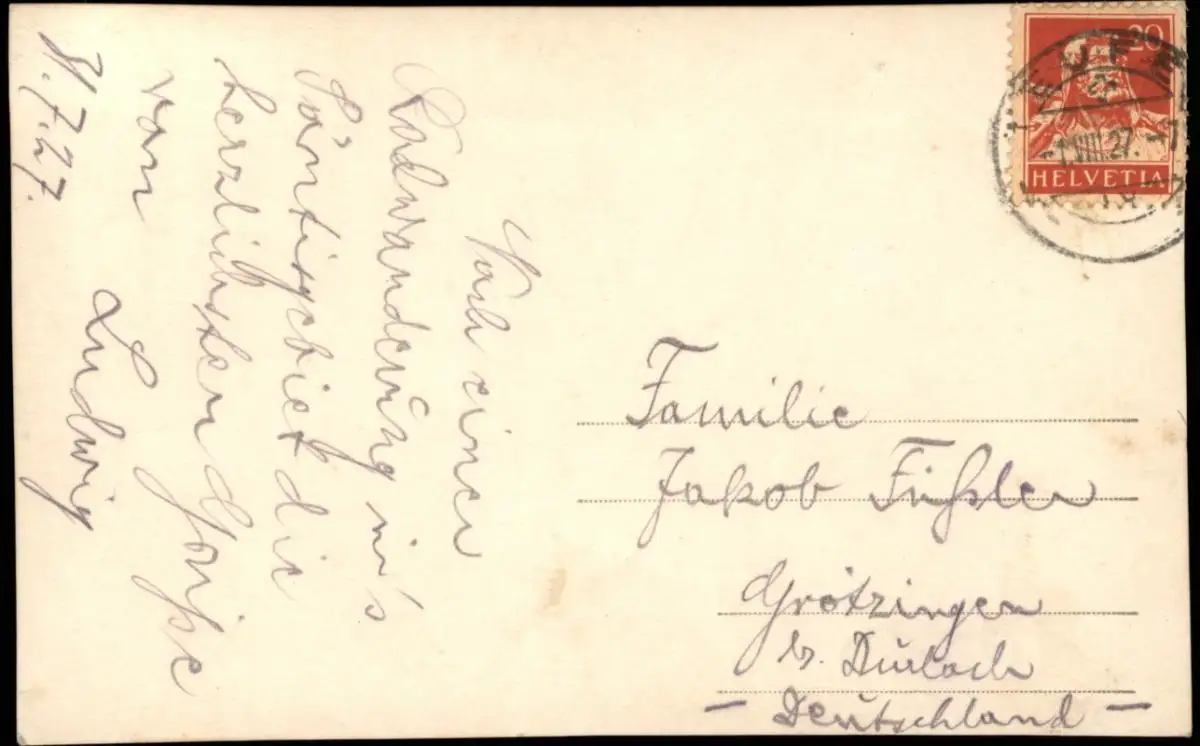 Nach einer
Radwanderung in's
Säntisgebiet die
herzlichsten Grüße
von Ludwig
31.7.27.
20
HELVETIA
TEUFEN
1.VIII.27.
Familie
Jakob Füßler
Grötzingen
b. Durlach
— Deutschland —